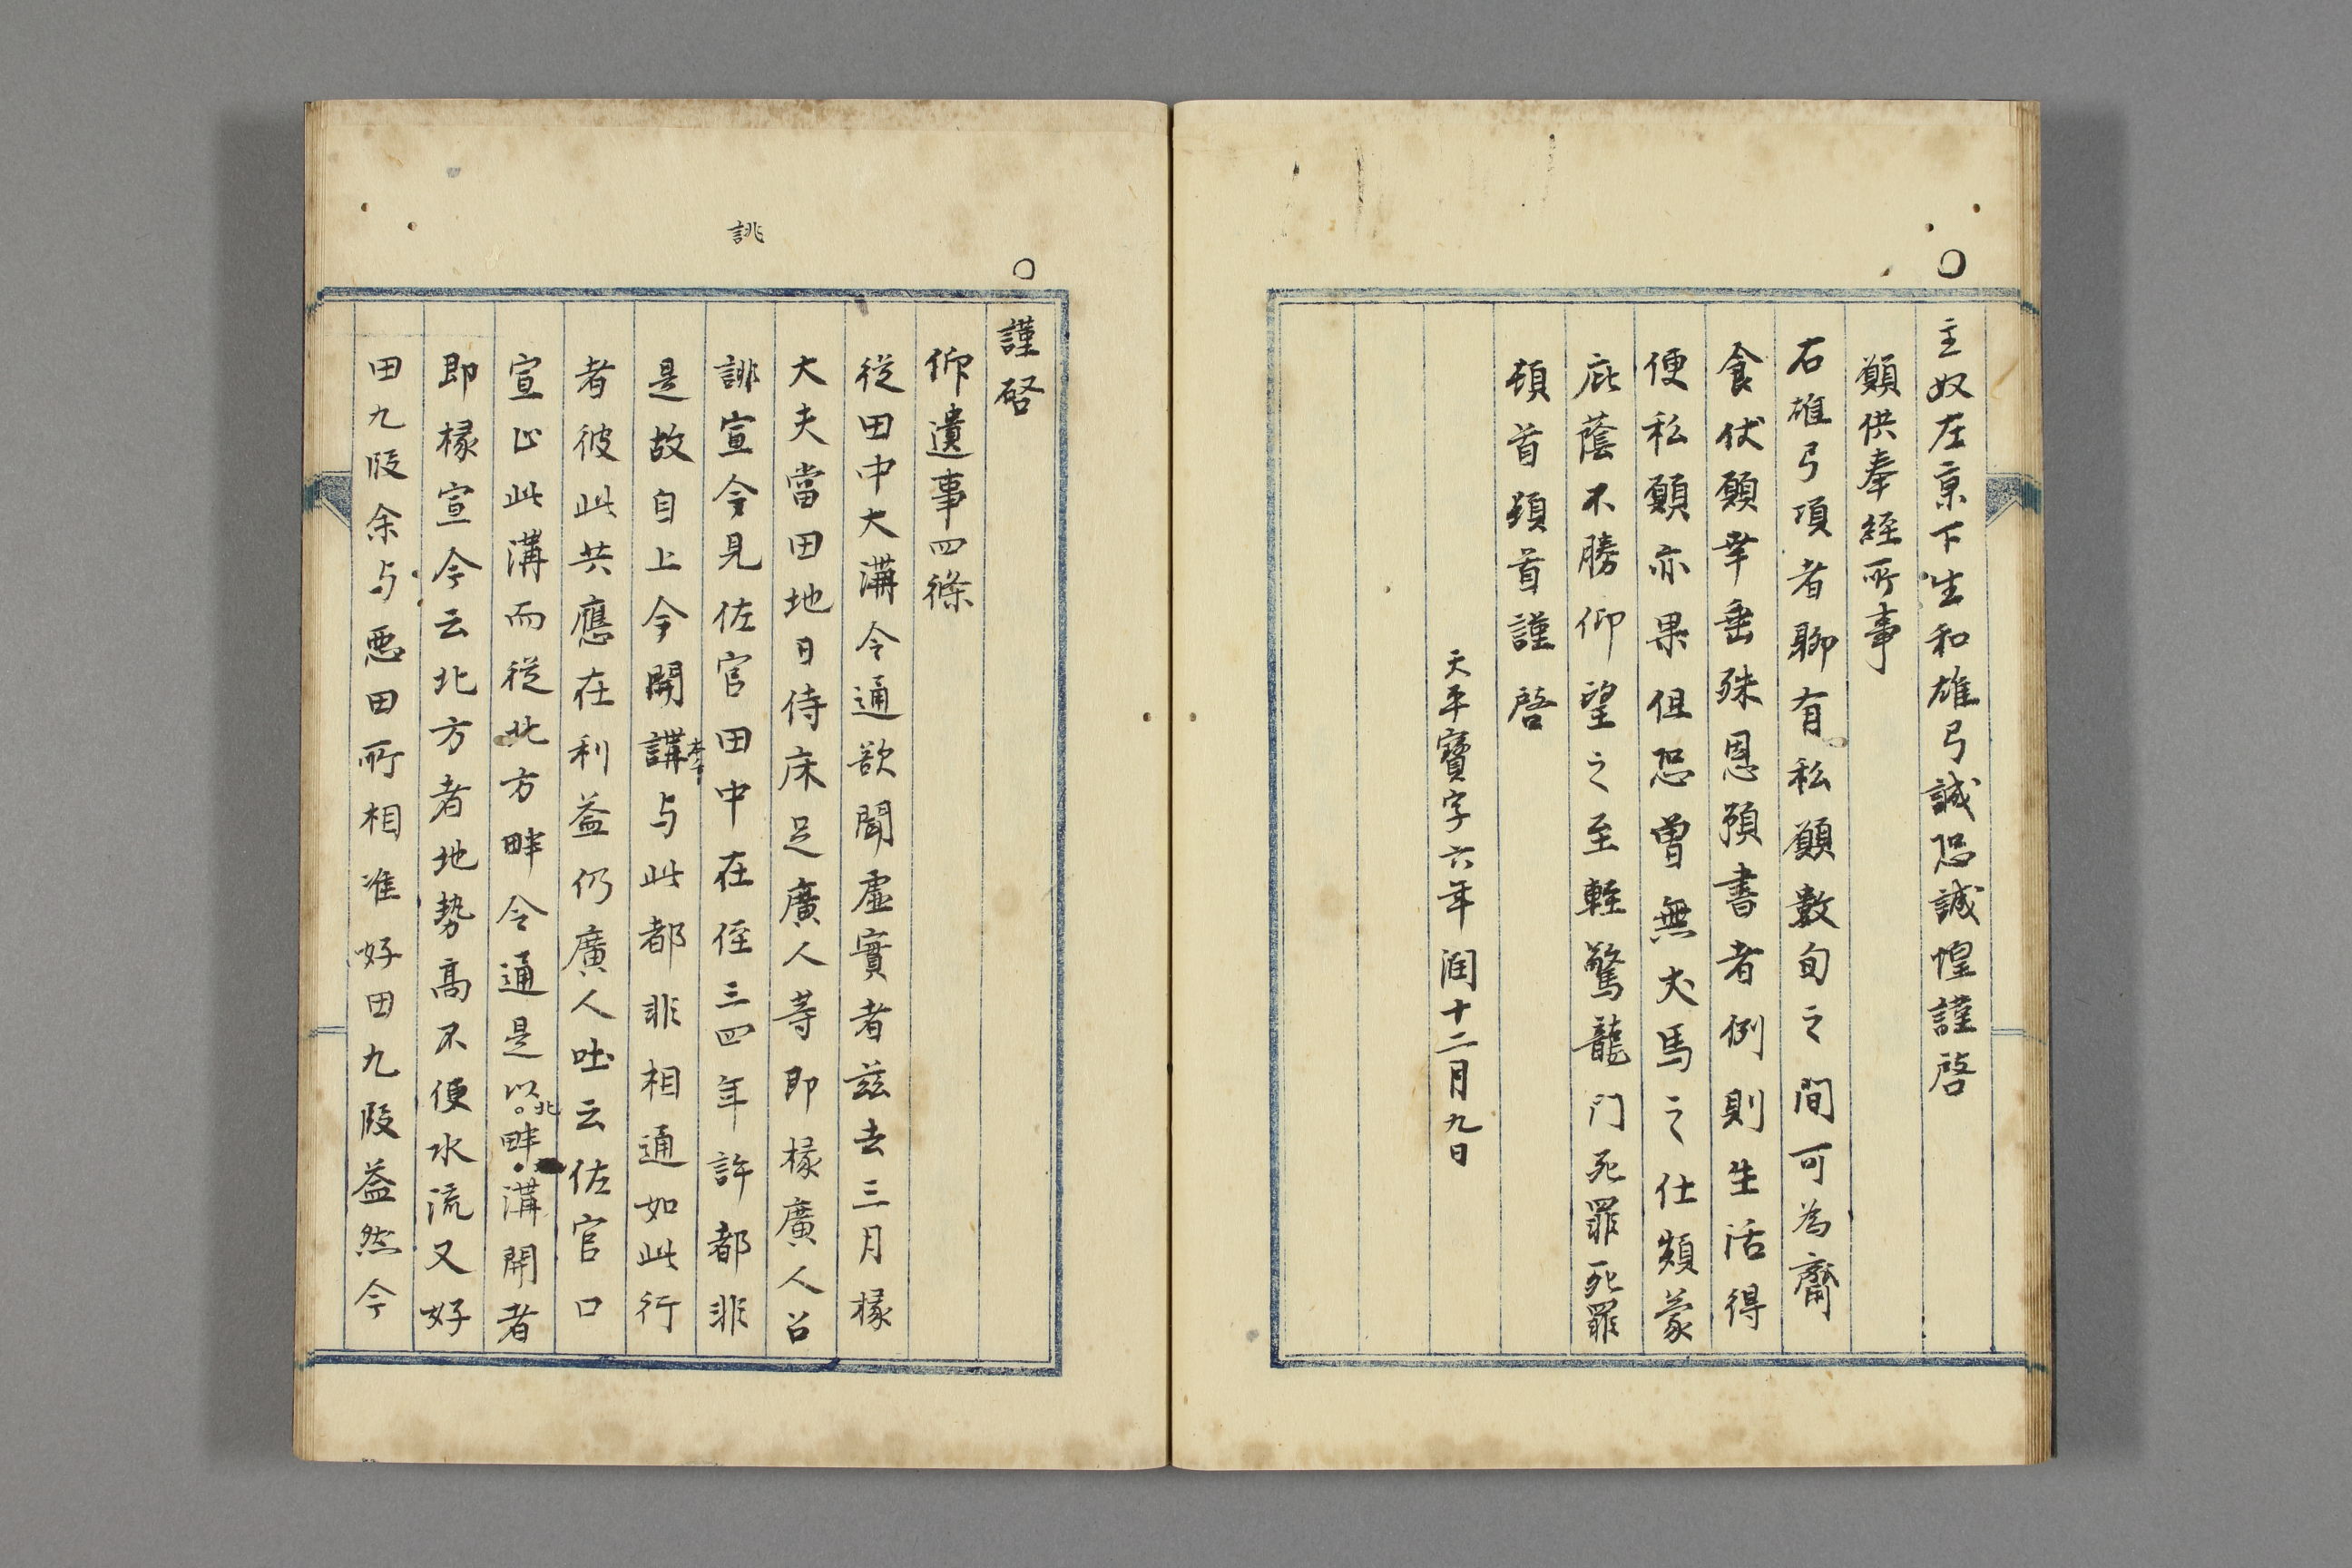 〇
主奴左京下生和雄弓誠恐誠惶謹啓
願供奉経所事
右雄弓項者聊有私願数旬之間可為齋
食伏願幸垂殊恩預書者例則生活得
便私願亦果但恐曽無犬馬之仕頻蒙
庇蔭不勝仰望之至輕驚龍门死罪死罪
頓首頓首謹啓
天平寳字六年潤十二月九日
〇
謹啓
仰遺事四條
従田中大溝令通欲聞虚實者兹去三月様
大夫當田地日侍床足廣人等即様廣人召
誂
誹宣今見佐官田中在侄三四年許都非
是故自上今開講与此都非相通如此行
本字
者彼此共應在利益仍廣人吐云佐官口
宣止此溝而従北方畔令通是以北畔溝開者
即様宣今云北方者地勢高不便水流又好
田九段余与悪田所相准好田九段益然今